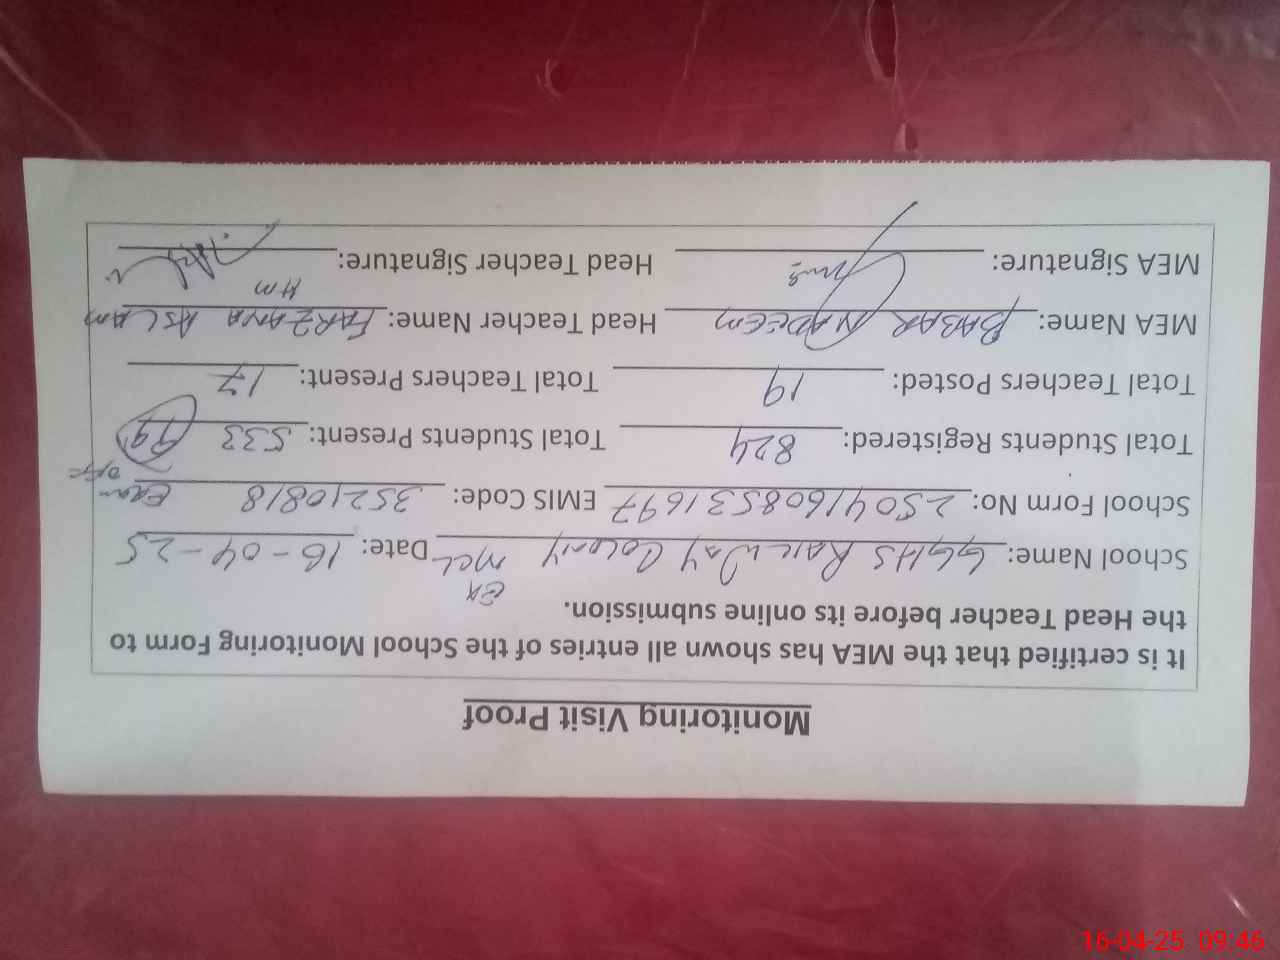 Monitoring Visit Proof
It is certified that the MEA has shown all entries of the School Monitoring Form to
the Head Teacher before its online submission.
Ex
School Name: GGHS RAILWAY COLONY MCL Date: 16-04-25
School Form No: 250416085316 97 EMIS Code: 35210818 Exam
OFF
Total Students Registered: 824 Total Students Present: 533 99
Total Teachers Posted: 19 Total Teachers Present: 17
MEA Name: BABAR NADEEM Head Teacher Name: FARZANA ASLAM
HM
MEA Signature: Head Teacher Signature:
16-04-25 09:46